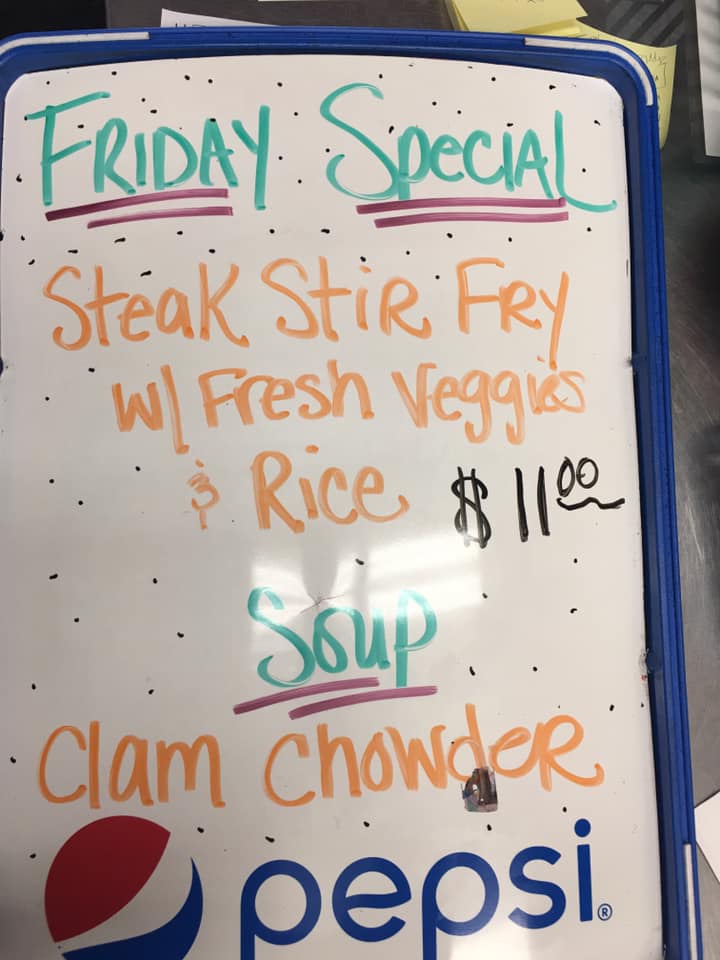 FRIDAY SPECIAL
Steak Stir Fry
w/ Fresh Veggies
& Rice $11.00
Soup
Clam Chowder
pepsi®